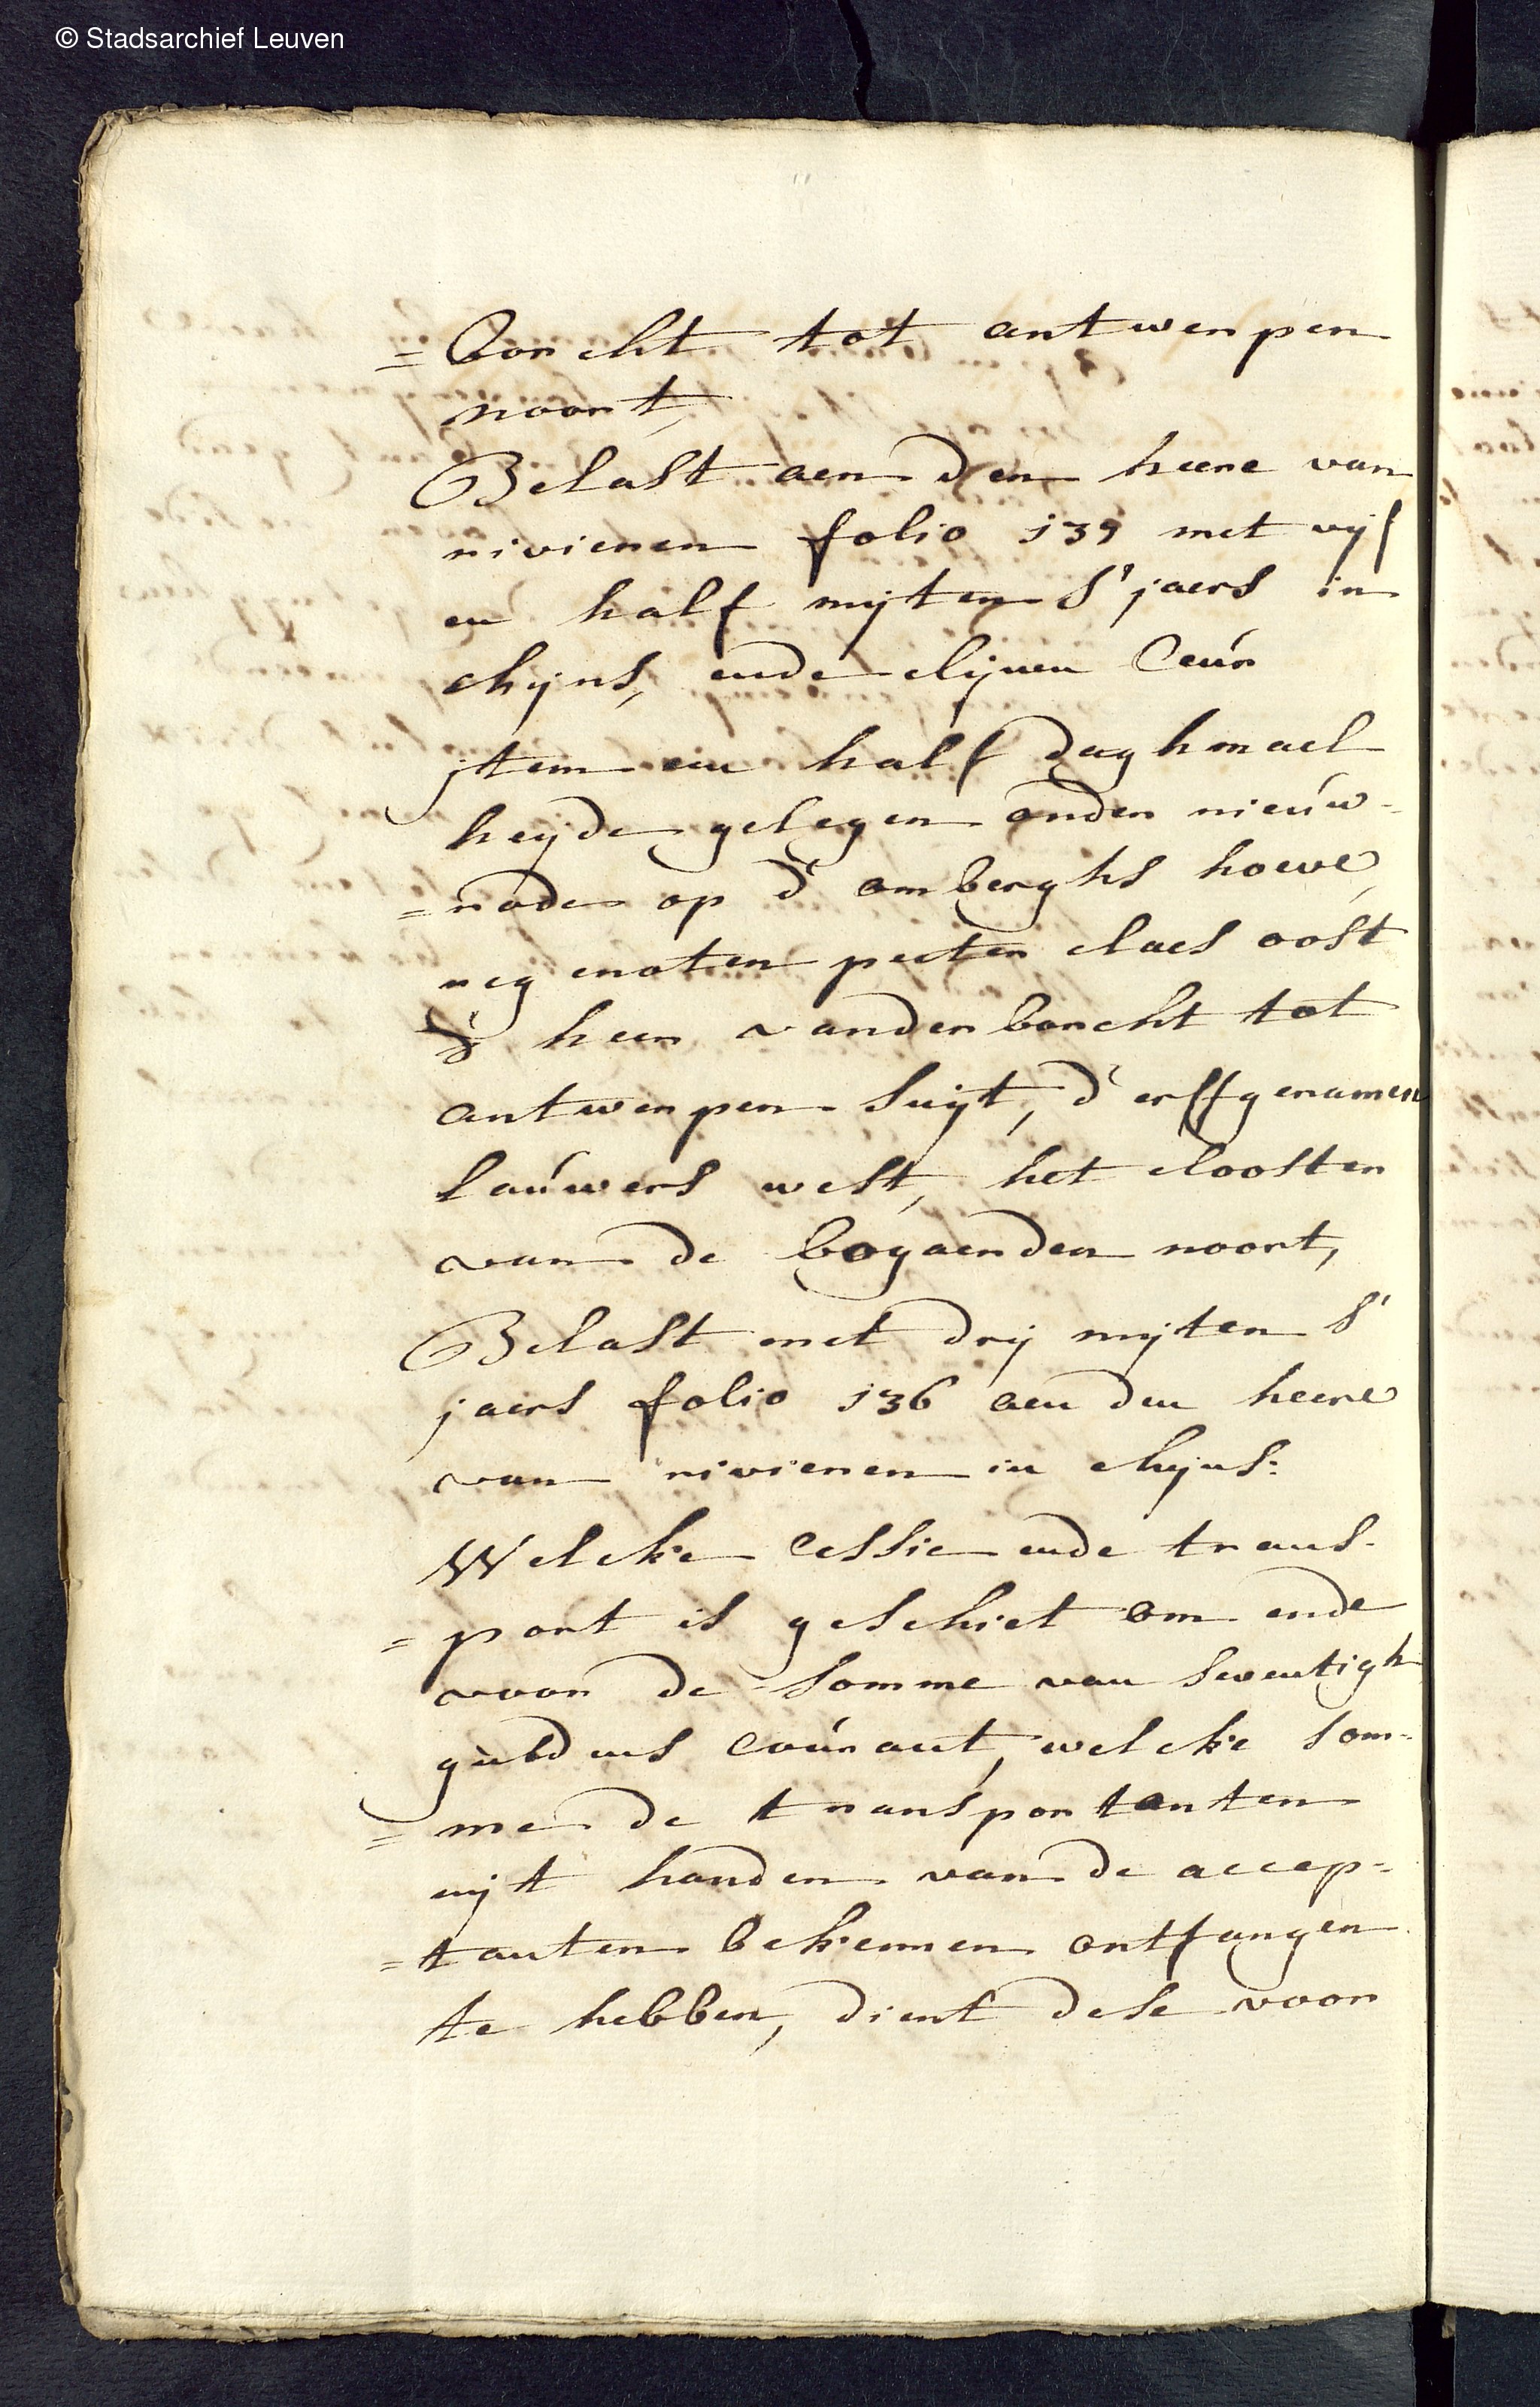 © Stadsarchief Leuven
= borcht tot antwerpen
noort,
Belast aen den heere van
rivieren folio 139 met vijf
en half mijten s' jaers in
chijns, ende clijnen ceur
jtem een half daghmael
heijde gelegen onder nieuw-
= rode op d' omberghs hoeve,
regenoten peeter claes oost
d' heer vander borcht tot
antwerpen suijt, d' erffgenamen
lauwers west, het clooster
van de bogaerden noort,
Belast met drij mijten s'
jaers folio 136 aen den heere
van rivieren in chijns:
Welcke cessie ende trans-
= port is geschiet om ende
voor de somme van swentigh
guldens courant, welcke som-
= me de transportanten
uijt handen van de accep-
= tanten bekennen ontfangen
te hebben, dient dese voor